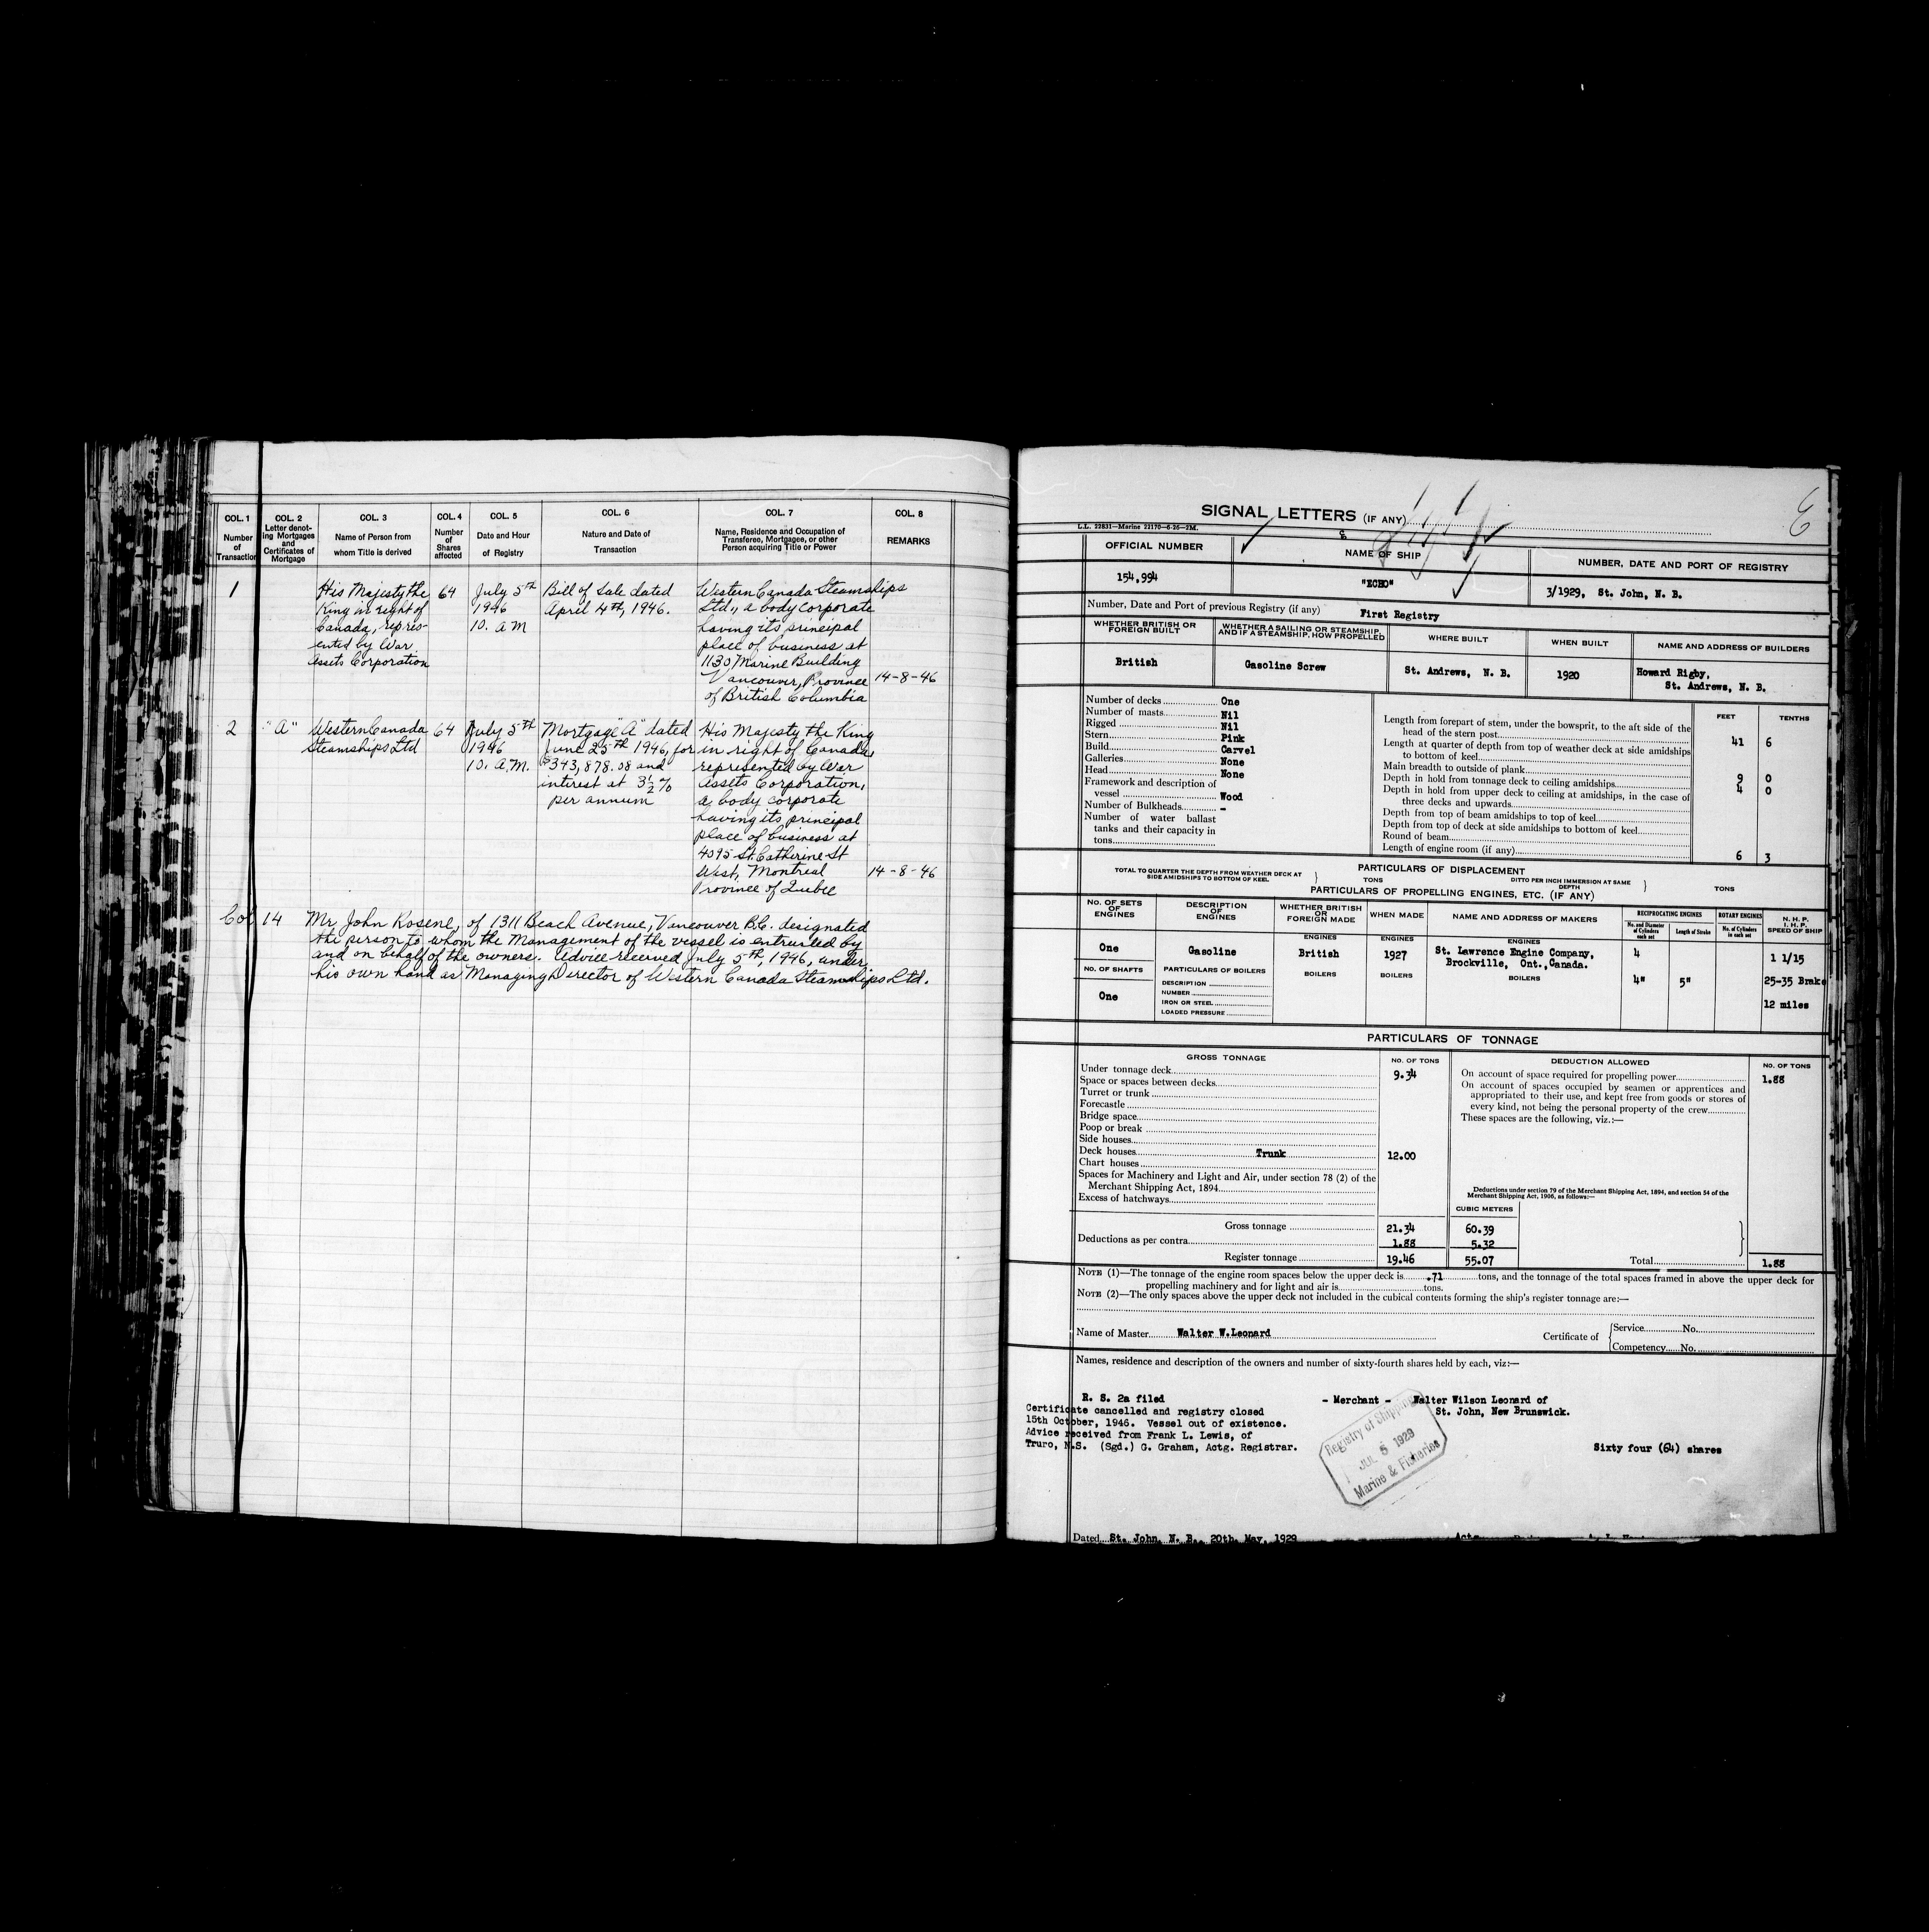 COL. 1 COL. 2 COL. 3 COL. 4 COL. 5 COL. 6 COL. 7 COL. 8
Number of Transaction
Letter denoting Mortgages and Certificates of Mortgage
Name of Person from whom Title is derived
Number of Shares affected
Date and Hour of Registry
Nature and Date of Transaction
Name, Residence and Occupation of Transferee, Mortgagee, or other Person acquiring Title or Power
REMARKS
1
His Majesty the
King in right of
Canada, repres-
ented by War
Assets Corporation
64
July 5th
1946
10. A M
Bill of Sale dated
April 4th, 1946.
Western Canada Steamships
Ltd., a body corporate
having its principal
place of business at
1130 Marine Building
Vancouver, Province
of British Columbia
14-8-46
2
"A"
Western Canada
Steamships Ltd
64
July 5th
1946
10. A.M.
Mortgage "A" dated
June 25th 1946, for
$343,878.08 and
interest at 3½%
per annum
His Majesty the King
in right of Canada,
represented by War
Assets Corporation,
a body corporate
having its principal
place of business at
4095 St. Catherine St
West, Montreal
Province of Quebec
14-8-46
Col 14 Mr John Rosene, of 1311 Beach Avenue, Vancouver B.C. designated
the person to whom the Management of the vessel is entrusted by
and on behalf of the owners. Advice received July 5th, 1946, under
his own hand as Managing Director of Western Canada Steamships Ltd.
SIGNAL LETTERS (IF ANY)
L.L. 22831—Marine 22170—6-26—2M.
OFFICIAL NUMBER
154,994
NAME OF SHIP
"ECHO"
NUMBER, DATE AND PORT OF REGISTRY
3/1929, St. John, N. B.
Number, Date and Port of previous Registry (if any) First Registry
WHETHER BRITISH OR FOREIGN BUILT
British
WHETHER A SAILING OR STEAMSHIP, AND IF A STEAMSHIP, HOW PROPELLED
Gasoline Screw
WHERE BUILT
St. Andrews, N. B.
WHEN BUILT
1920
NAME AND ADDRESS OF BUILDERS
Howard Rigby,
St. Andrews, N. B.
Number of decks One
Number of masts Nil
Rigged Nil
Stern Pink
Build Carvel
Galleries None
Head None
Framework and description of
vessel Wood
Number of Bulkheads -
Number of water ballast
tanks and their capacity in
tons
FEET TENTHS
Length from forepart of stem, under the bowsprit, to the aft side of the
head of the stern post 41 6
Length at quarter of depth from top of weather deck at side amidships
to bottom of keel
Main breadth to outside of plank 9 0
Depth in hold from tonnage deck to ceiling amidships 4 0
Depth in hold from upper deck to ceiling at amidships, in the case of
three decks and upwards
Depth from top of beam amidships to top of keel
Depth from top of deck at side amidships to bottom of keel
Round of beam
Length of engine room (if any) 6 3
PARTICULARS OF DISPLACEMENT
TOTAL TO QUARTER THE DEPTH FROM WEATHER DECK AT SIDE AMIDSHIPS TO BOTTOM OF KEEL } TONS
DITTO PER INCH IMMERSION AT SAME DEPTH } TONS
PARTICULARS OF PROPELLING ENGINES, ETC. (IF ANY)
NO. OF SETS OF ENGINES
One
NO. OF SHAFTS
One
DESCRIPTION OF ENGINES
Gasoline
PARTICULARS OF BOILERS
DESCRIPTION
NUMBER
IRON OR STEEL
LOADED PRESSURE
WHETHER BRITISH OR FOREIGN MADE
ENGINES
British
BOILERS
WHEN MADE
ENGINES
1927
BOILERS
NAME AND ADDRESS OF MAKERS
ENGINES
St. Lawrence Engine Company,
Brockville, Ont., Canada.
BOILERS
RECIPROCATING ENGINES
No. and Diameter of Cylinders each set
4
4"
Length of Stroke
5"
ROTARY ENGINES
No. of Cylinders in each set
N. H. P.
I. H. P.
SPEED OF SHIP
1 1/15
25-35 Brake
12 miles
PARTICULARS OF TONNAGE
GROSS TONNAGE NO. OF TONS
Under tonnage deck 9.34
Space or spaces between decks
Turret or trunk
Forecastle
Bridge space
Poop or break
Side houses
Deck houses Trunk 12.00
Chart houses
Spaces for Machinery and Light and Air, under section 78 (2) of the
Merchant Shipping Act, 1894
Excess of hatchways
Gross tonnage 21.34 60.39
Deductions as per contra 1.88 5.32
Register tonnage 19.46 55.07
DEDUCTION ALLOWED NO. OF TONS
On account of space required for propelling power 1.88
On account of spaces occupied by seamen or apprentices and
appropriated to their use, and kept free from goods or stores of
every kind, not being the personal property of the crew
These spaces are the following, viz.:—
Deductions under section 79 of the Merchant Shipping Act, 1894, and section 54 of the
Merchant Shipping Act, 1906, as follows:—
CUBIC METERS
Total 1.88
NOTE (1)—The tonnage of the engine room spaces below the upper deck is .71 tons, and the tonnage of the total spaces framed in above the upper deck for
propelling machinery and for light and air is tons.
NOTE (2)—The only spaces above the upper deck not included in the cubical contents forming the ship's register tonnage are:—
Name of Master Walter W.Leonard
Certificate of Service No.
Competency No.
Names, residence and description of the owners and number of sixty-fourth shares held by each, viz:—
R. S. 2a filed
Certificate cancelled and registry closed
15th October, 1946. Vessel out of existence.
Advice received from Frank L. Lewis, of
Truro, N.S. (Sgd.) G. Graham, Actg. Registrar.
- Merchant - Walter Wilson Leonard of
St. John, New Brunswick.
Sixty four (64) shares
Registry of Shipping
JUL 5 1929
Marine & Fisheries
Dated St. John, N. B. 20th. May, 1929